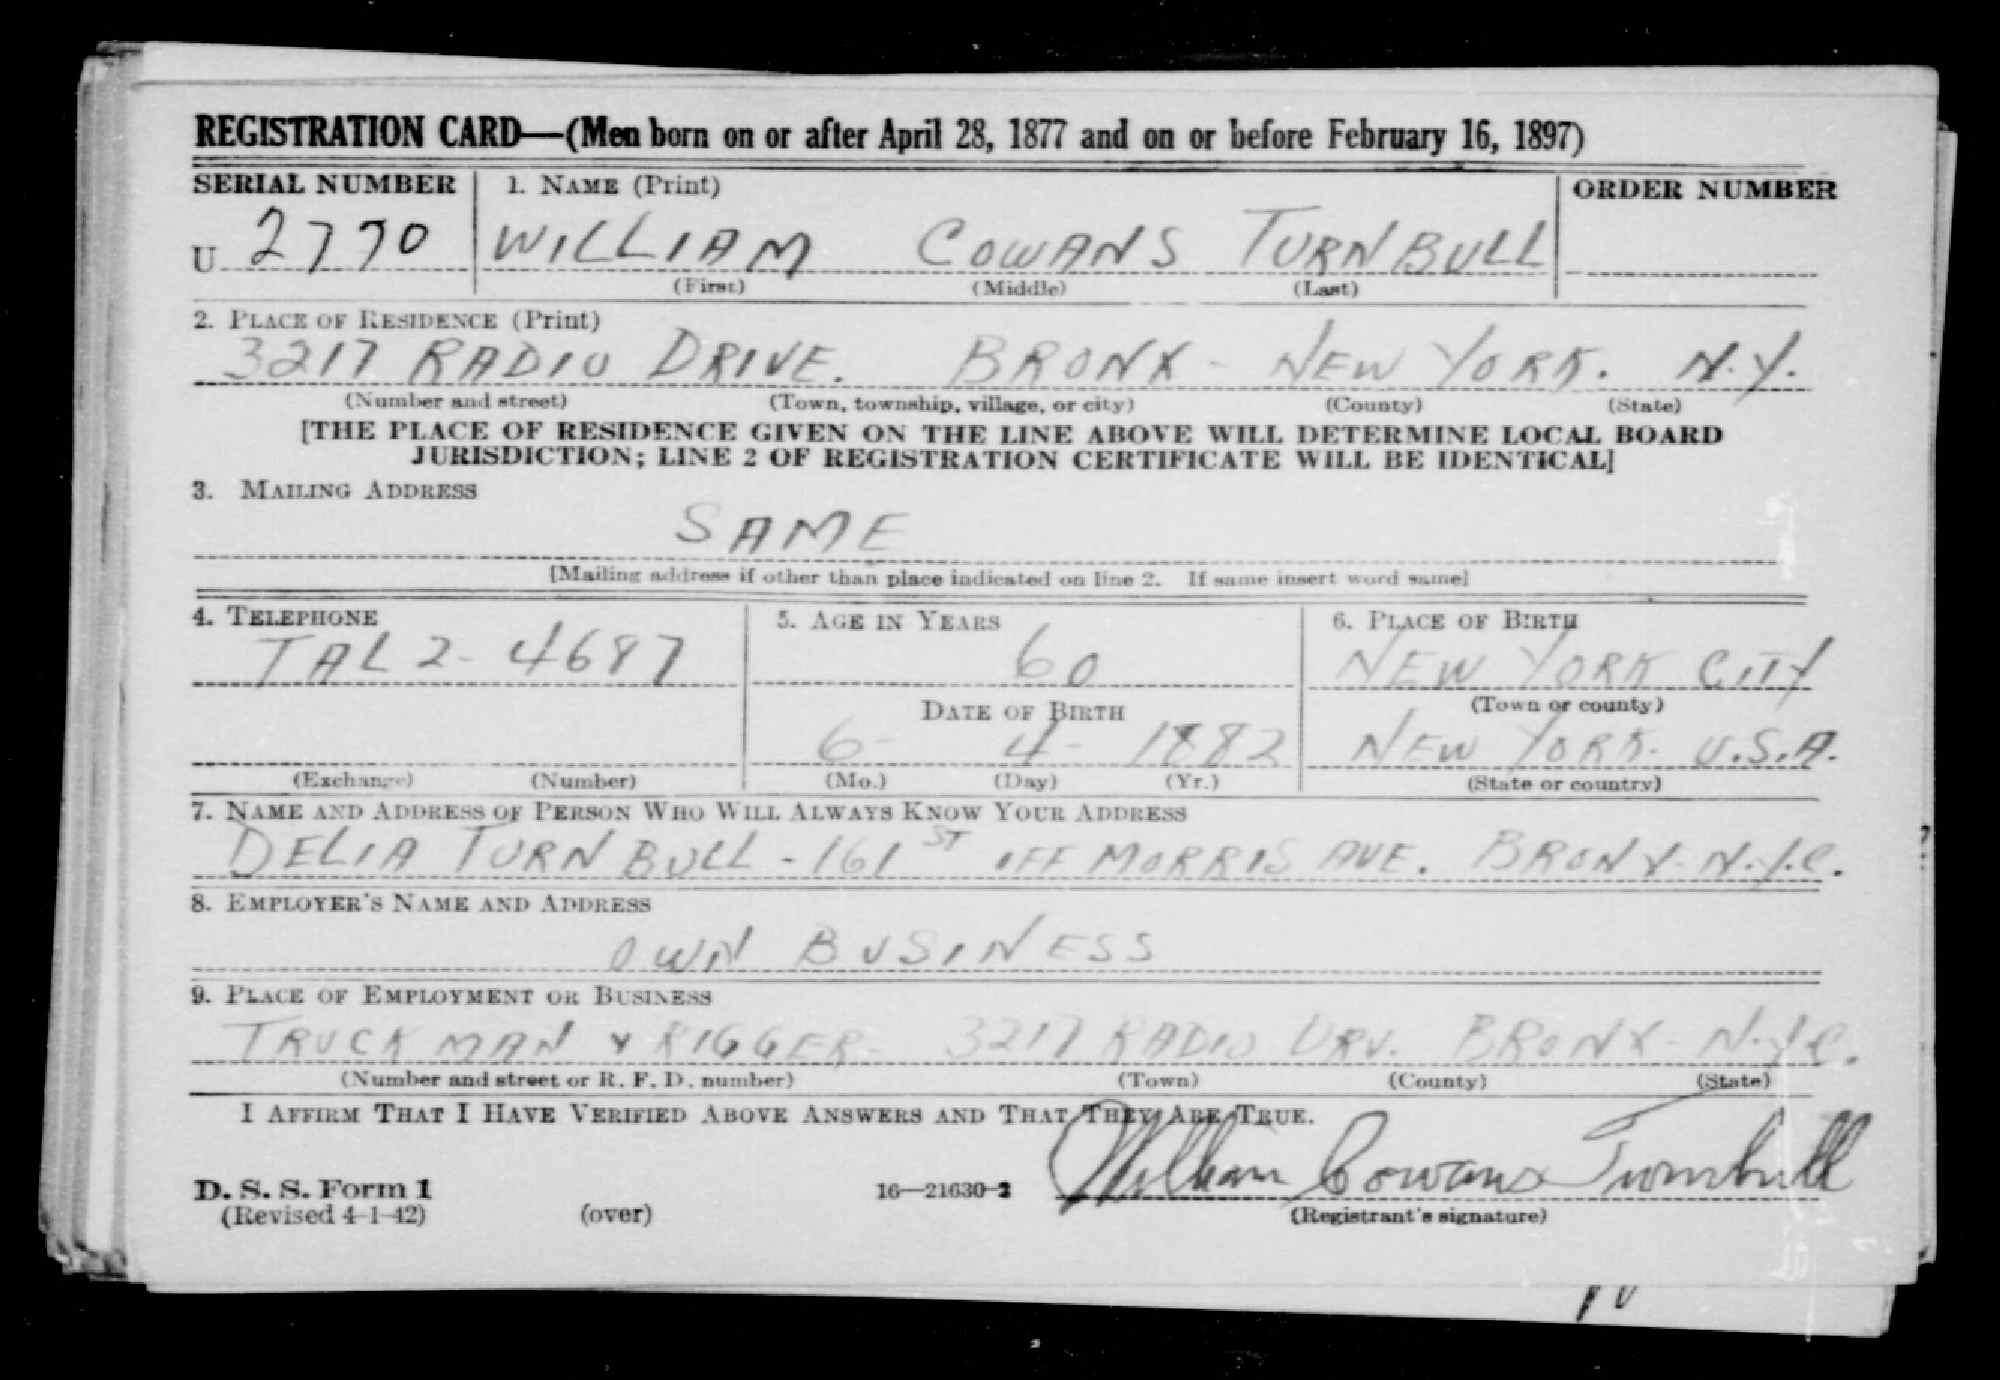 REGISTRATION CARD—(Men born on or after April 28, 1877 and on or before February 16, 1897)
SERIAL NUMBER 1. NAME (Print) ORDER NUMBER
U 2770 WILLIAM COWANS TURNBULL
(First) (Middle) (Last)
2. PLACE OF RESIDENCE (Print)
3217 RADIO DRIVE. BRONX - NEW YORK. N.Y.
(Number and street) (Town, township, village, or city) (County) (State)
[THE PLACE OF RESIDENCE GIVEN ON THE LINE ABOVE WILL DETERMINE LOCAL BOARD
JURISDICTION; LINE 2 OF REGISTRATION CERTIFICATE WILL BE IDENTICAL]
3. MAILING ADDRESS
SAME
[Mailing address if other than place indicated on line 2. If same insert word same]
4. TELEPHONE 5. AGE IN YEARS 6. PLACE OF BIRTH
TAL 2- 4687 60 NEW YORK CITY
(Town or county)
DATE OF BIRTH
6- 4- 1882 NEW YORK. U.S.A.
(Exchange) (Number) (Mo.) (Day) (Yr.) (State or country)
7. NAME AND ADDRESS OF PERSON WHO WILL ALWAYS KNOW YOUR ADDRESS
DELIA TURNBULL - 161 ST OFF MORRIS AVE. BRONX - N.Y.C.
8. EMPLOYER'S NAME AND ADDRESS
OWN BUSINESS
9. PLACE OF EMPLOYMENT OR BUSINESS
TRUCKMAN & RIGGER - 3217 RADIO DRV. BRONX - N.Y.C.
(Number and street or R. F. D. number) (Town) (County) (State)
I AFFIRM THAT I HAVE VERIFIED ABOVE ANSWERS AND THAT THEY ARE TRUE.
William Cowans Turnbull
D. S. S. Form 1 16—21630-2
(Revised 4-1-42) (over) (Registrant's signature)